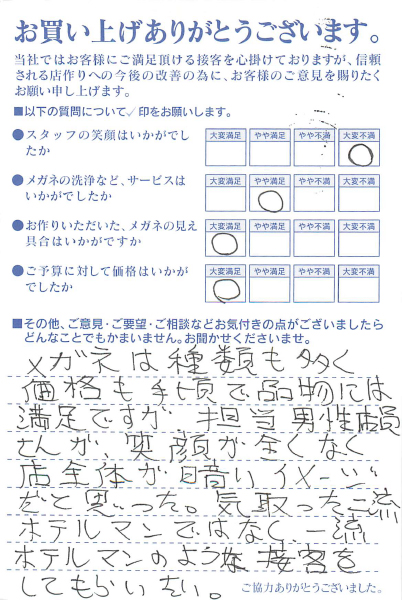 お買い上げありがとうございます。
当社ではお客様にご満足頂ける接客を心掛けておりますが、信頼
される店作りへの今後の改善の為に、お客様のご意見を賜りたく
お願い申し上げます。
■以下の質問について✓印をお願いします。
●スタッフの笑顔はいかがでし
たか
大変満足 やや満足 やや不満 大変不満
●メガネの洗浄など、サービスは
いかがでしたか
大変満足 やや満足 やや不満 大変不満
●お作りいただいた、メガネの見え
具合はいかがですか
大変満足 やや満足 やや不満 大変不満
●ご予算に対して価格はいかが
でしたか
大変満足 やや満足 やや不満 大変不満
■その他、ご意見・ご要望・ご相談などお気付きの点がございましたら
どんなことでもかまいません。お聞かせくださいませ。
メガネは種類も多く
価格も手頃で品物には
満足ですが、担当男性店員
さんが、笑顔が全くなく
店全体が暗いイメージ
だと思った。気取った二流
ホテルマンではなく、一流
ホテルマンのような接客を
してもらいたい。
ご協力ありがとうございました。